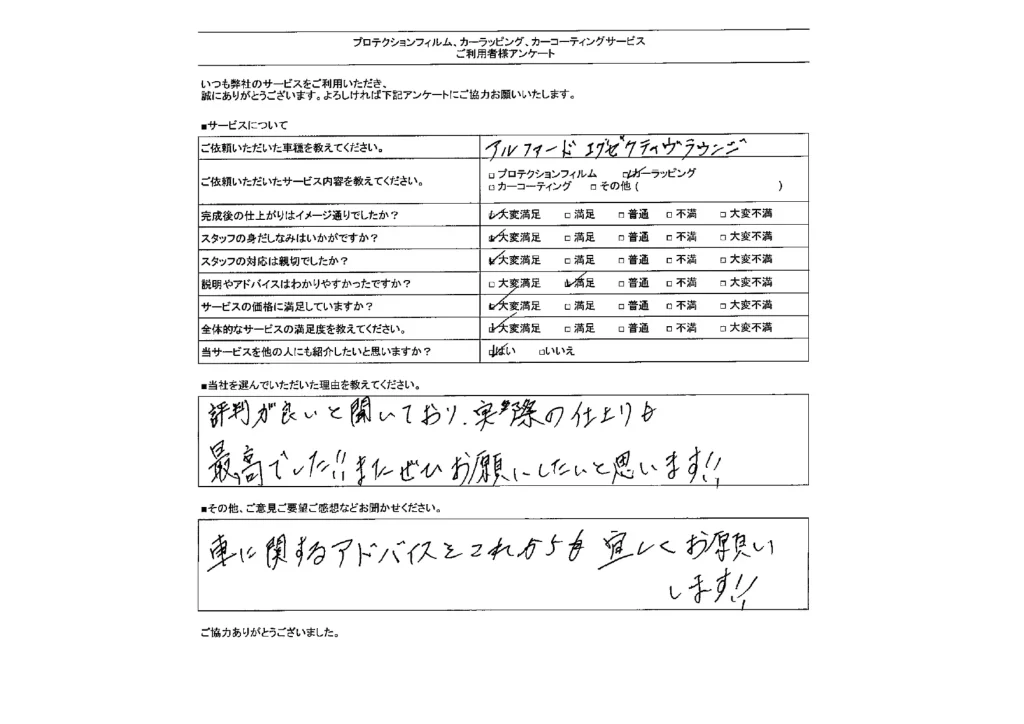 プロテクションフィルム、カーラッピング、カーコーティングサービス
ご利用者様アンケート
いつも弊社のサービスをご利用いただき、
誠にありがとうございます。よろしければ下記アンケートにご協力お願いいたします。
■サービスについて
ご依頼いただいた車種を教えてください。 アルファード エグゼクティヴラウンジ
ご依頼いただいたサービス内容を教えてください。 □プロテクションフィルム ☑カーラッピング
□カーコーティング □その他( )
完成後の仕上がりはイメージ通りでしたか? ☑大変満足 □満足 □普通 □不満 □大変不満
スタッフの身だしなみはいかがですか? ☑大変満足 □満足 □普通 □不満 □大変不満
スタッフの対応は親切でしたか? ☑大変満足 □満足 □普通 □不満 □大変不満
説明やアドバイスはわかりやすかったですか? □大変満足 ☑満足 □普通 □不満 □大変不満
サービスの価格に満足していますか? ☑大変満足 □満足 □普通 □不満 □大変不満
全体的なサービスの満足度を教えてください。 ☑大変満足 □満足 □普通 □不満 □大変不満
当サービスを他の人にも紹介したいと思いますか? ☑はい □いいえ
■当社を選んでいただいた理由を教えてください。
評判が良いと聞いており、実際の仕上りも
最高でした!!またぜひお願いしたいと思います!!
■その他、ご意見ご要望ご感想などお聞かせください。
車に関するアドバイスをこれからも宜しくお願い
します!!
ご協力ありがとうございました。